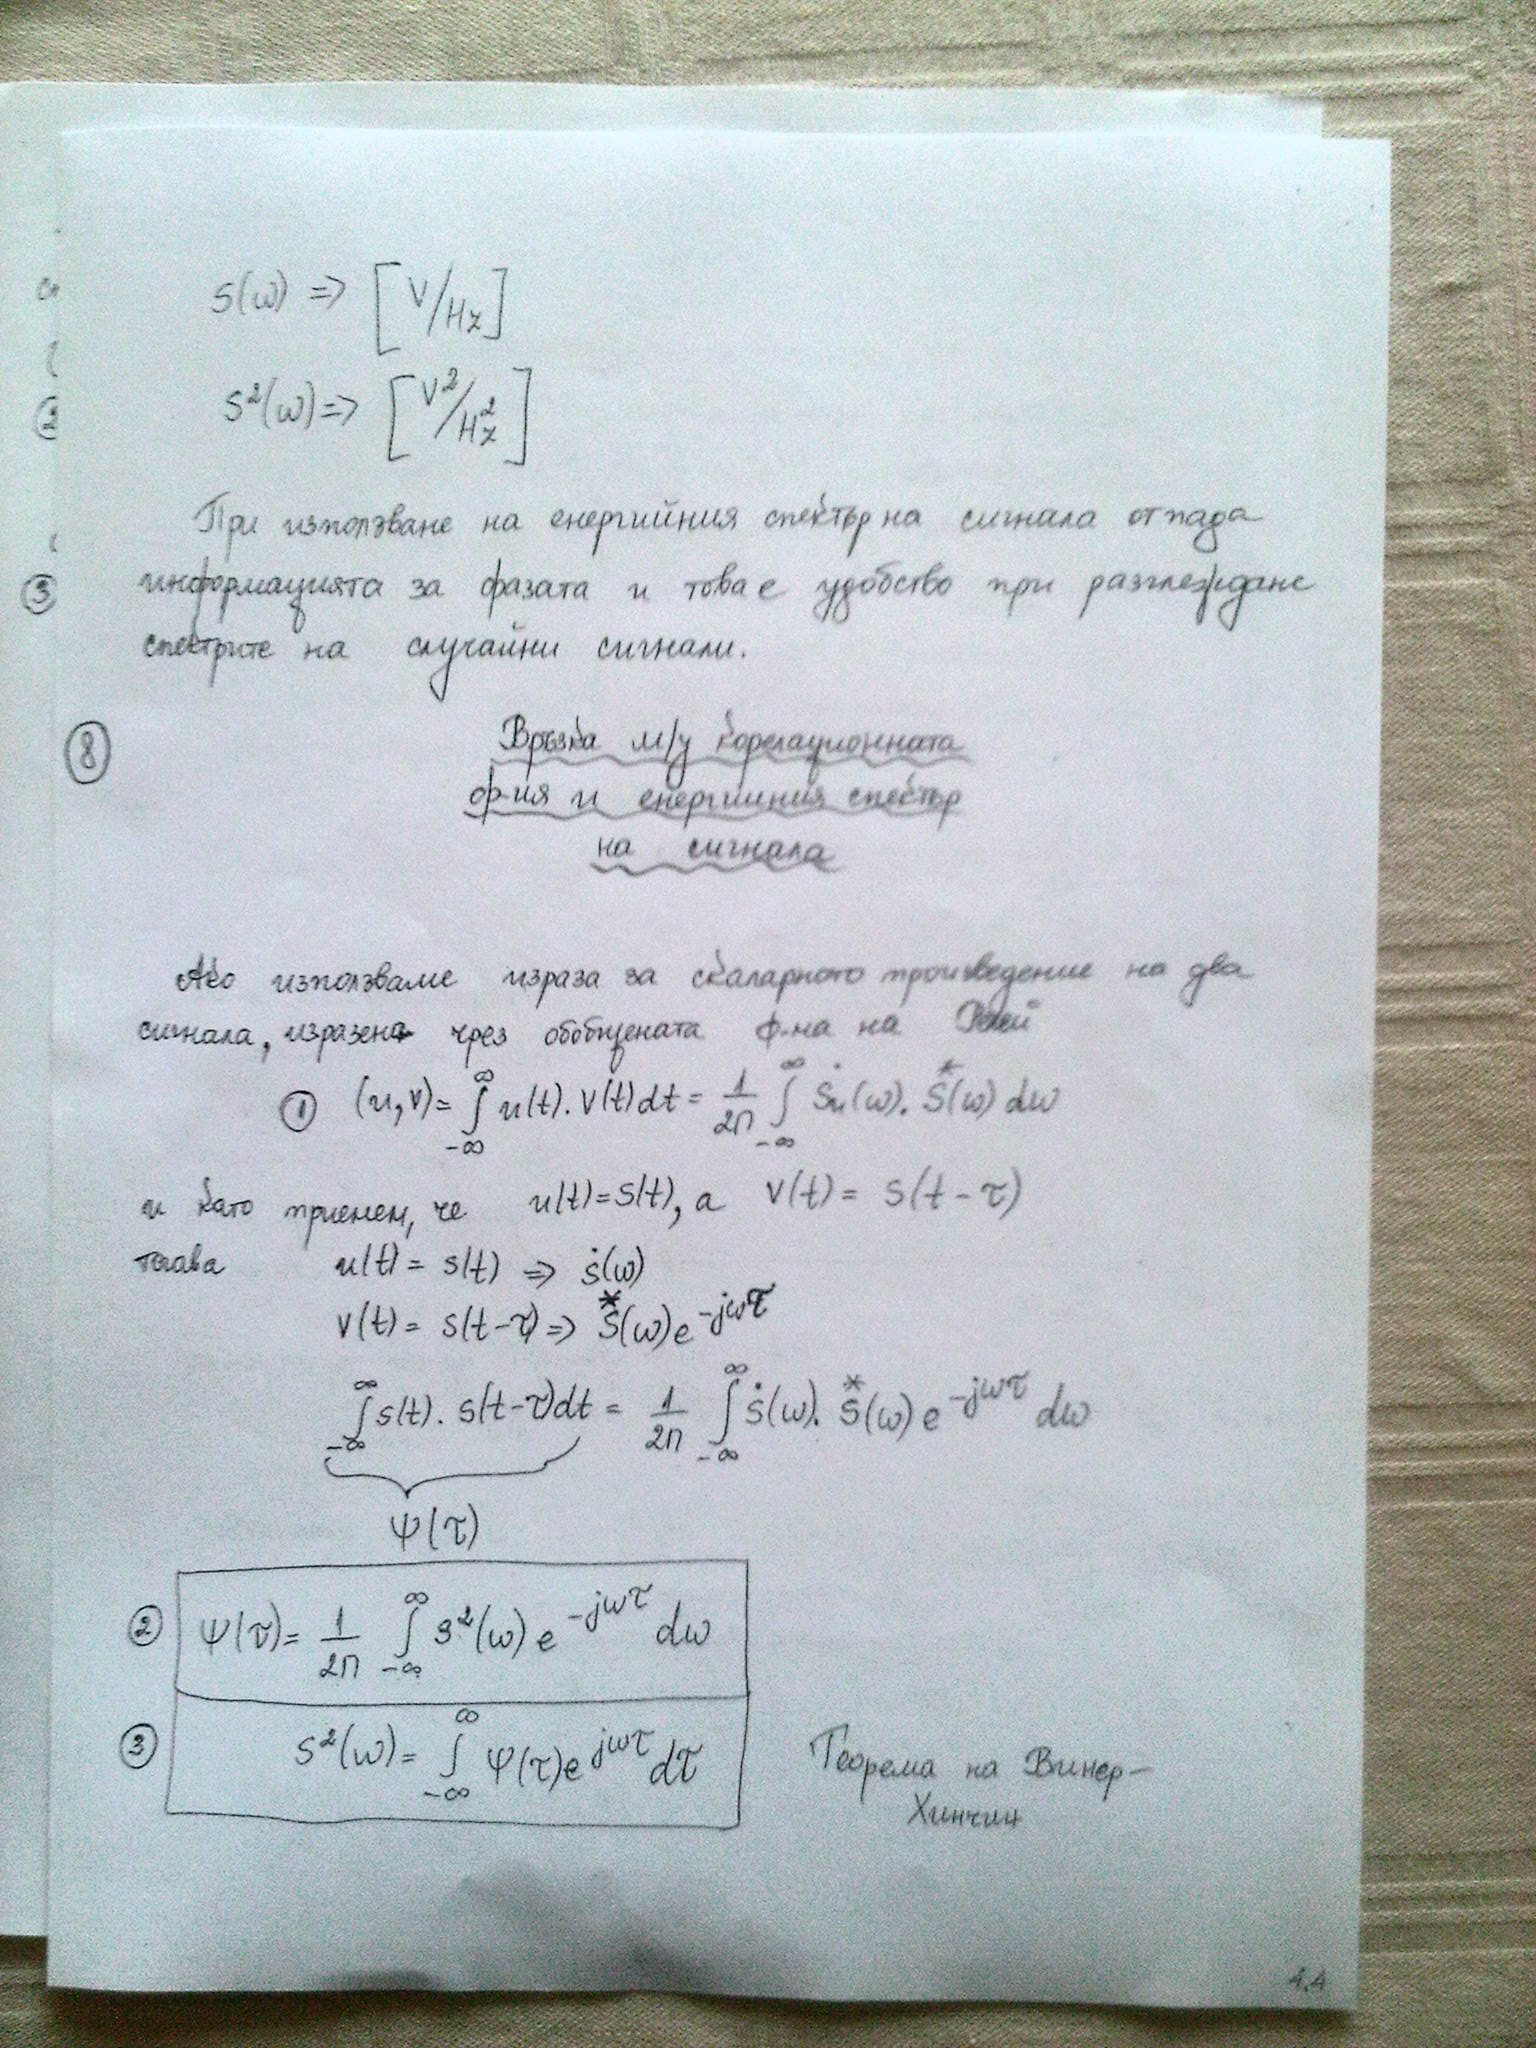 S(ω) => [V/Hz]
S²(ω) => [V²/Hz²]
При използване на енергийния спектър на сигнала отпада
информацията за фазата и това е удобство при разглеждане
спектрите на случайни сигнали.
⑧ Връзка м/у корелационната
ф-ия и енергийния спектър
на сигнала
Ако използваме израза за скаларното произведение на два
сигнала, изразена чрез обобщената ф-ла на Релей
① (u,v) = ∫_{-∞}^{∞} u(t).v(t)dt = 1/2π ∫_{-∞}^{∞} Ṡu(ω). S*(ω) dω
и като приемем, че u(t)=S(t), а v(t) = s(t-τ)
тогава u(t) = s(t) => ṡ(ω)
v(t) = s(t-τ) => S*(ω)e^{-jωτ}
∫_{-∞}^{∞} s(t). s(t-τ)dt = 1/2π ∫_{-∞}^{∞} ṡ(ω). S*(ω) e^{-jωτ} dω
Ψ(τ)
② Ψ(τ) = 1/2π ∫_{-∞}^{∞} s²(ω) e^{-jωτ} dω
③ s²(ω) = ∫_{-∞}^{∞} Ψ(τ)e^{jωτ}dτ
Теорема на Винер-
Хинчин
4.4
2
3